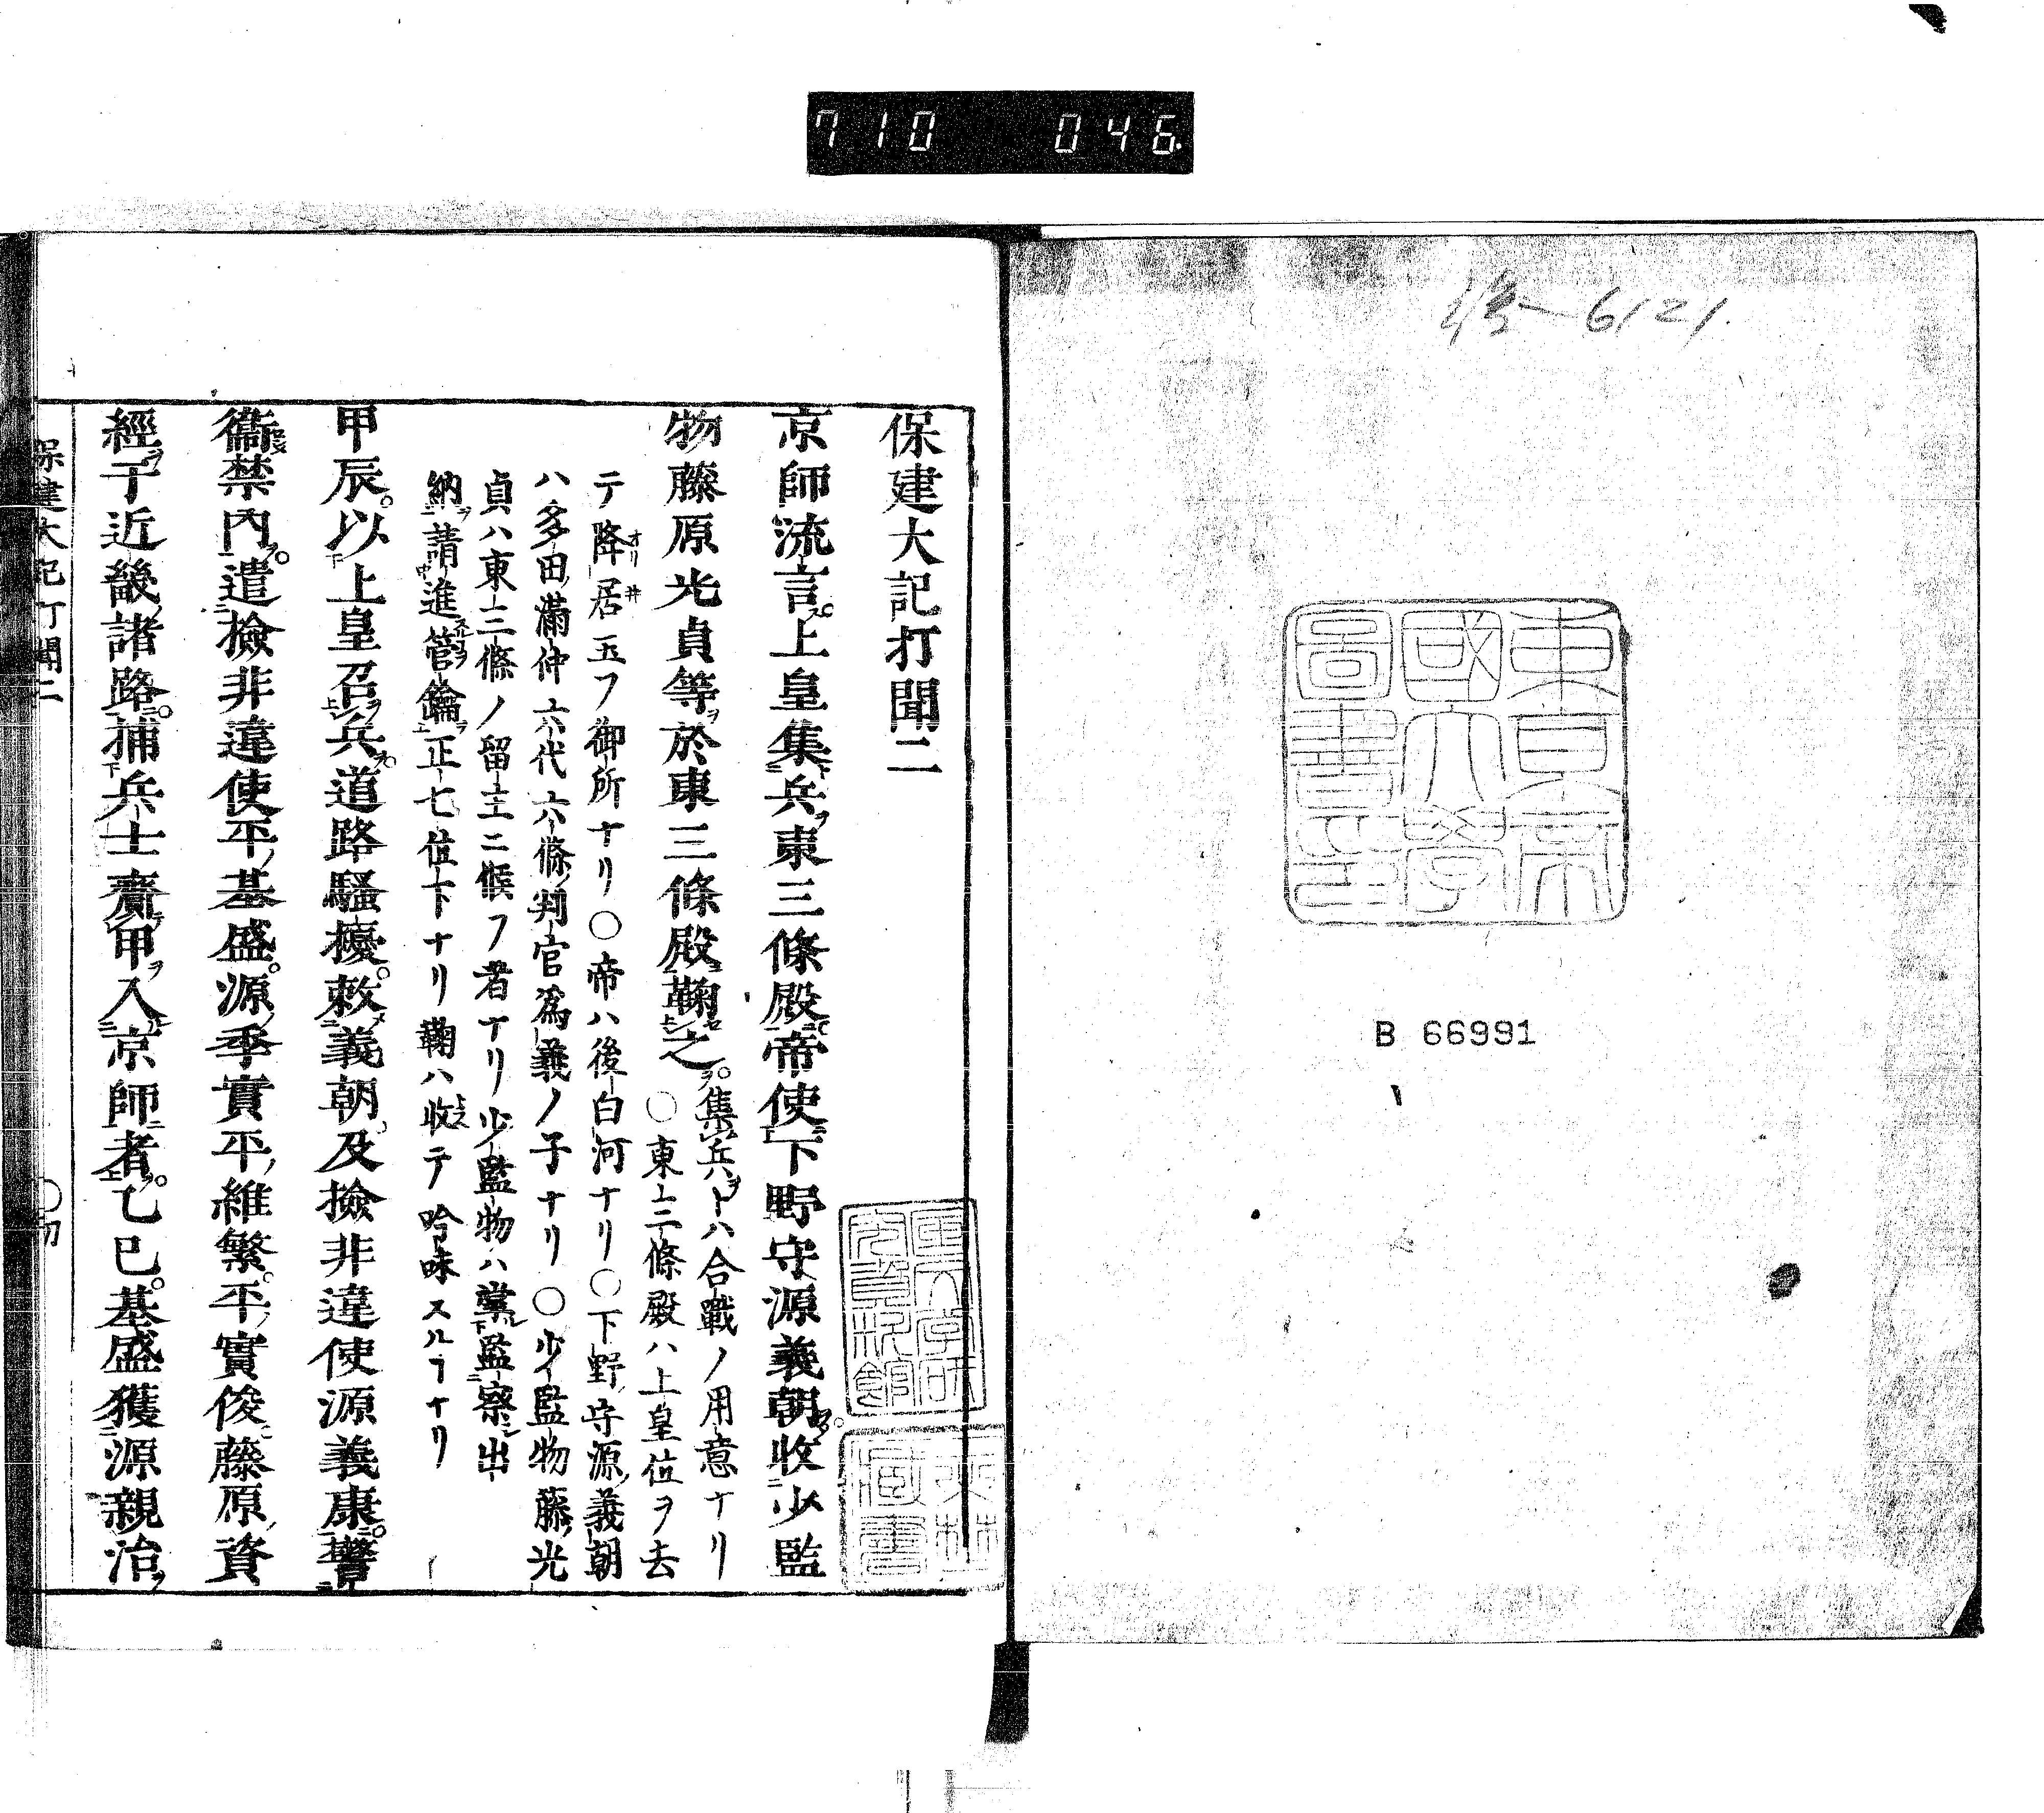 710 046
6121
東京帝
國大學
圖書印
B 66991
保建大記打聞二
京師流言。上皇集兵東三條殿。帝使下野守源義朝收少監
物藤原光貞等於東三條殿鞠之。集兵トハ合戰ノ用意ナリ
○東三條殿ハ上皇位ヲ去
テ降居玉フ御所ナリ○帝ハ後白河ナリ○下野守源義朝
ハ多田滿仲六代六條判官爲義ノ子ナリ○少監物藤光
貞ハ東三條ノ留主ニ候フ者ナリ少監物ハ掌監察出
納請進管鑰正七位下ナリ鞠ハ收テ吟味スルヿナリ
甲辰。以上皇召兵。道路騷擾。敕義朝及撿非違使源義康。警
衞禁內。遣撿非違使平基盛。源季實平維繁。平實俊藤原資
經于近畿諸路。捕兵士齎甲入京師者。乙巳。基盛獲源親治
保建大記打聞二